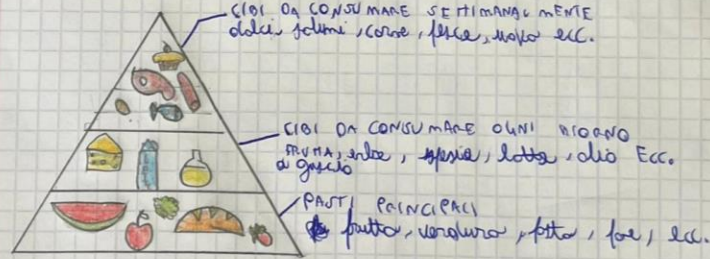 CIBI DA CONSUMARE SETTIMANALMENTE
dolci, salumi, carne, pesce, uova ecc.
CIBI DA CONSUMARE OGNI GIORNO
FRUTTA, erbe, spezie, latte, olio ECC.
a guscio
PASTI PRINCIPALI
frutta, verdura, ecc.